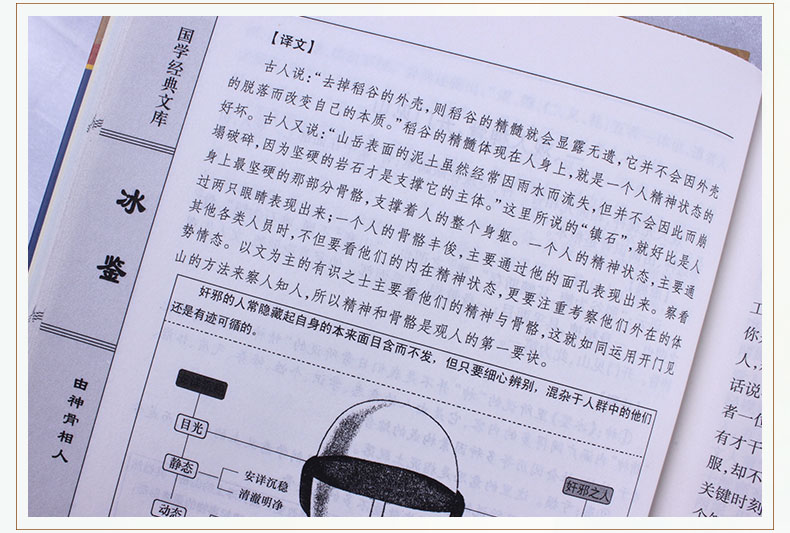 国学经典文库
冰鉴
由神骨相人
【译文】
古人说：“去掉稻谷的外壳，则稻谷的精髓就会显露无遗，它并不会因外壳
的脱落而改变自己的本质。”稻谷的精髓体现在人身上，就是一个人精神状态的
好坏。古人又说：“山岳表面的泥土虽然经常因雨水而流失，但并不会因此而崩
塌破碎，因为坚硬的岩石才是支撑它的主体。”这里所说的“镇石”，就好比是人
身上最坚硬的那部分骨骼，支撑着人的整个身躯。一个人的精神状态，主要通
过两只眼睛表现出来；一个人的骨骼丰俊，主要通过他的面孔表现出来。察看
其他各类人员时，不但要看他们的内在精神状态，更要注重考察他们外在的体
势情态。以文为主的有识之士主要看他们的精神与骨骼，这就如同运用开门见
山的方法来察人知人，所以精神和骨骼是观人的第一要诀。
奸邪的人常隐藏起自身的本来面目含而不发，但只要细心辨别，混杂于人群中的他们
还是有迹可循的。
目光
静态
安详沉稳
清澈明净
动态
奸邪之人
你
人，
话说
者一
有才干
服，却不
关键时刻